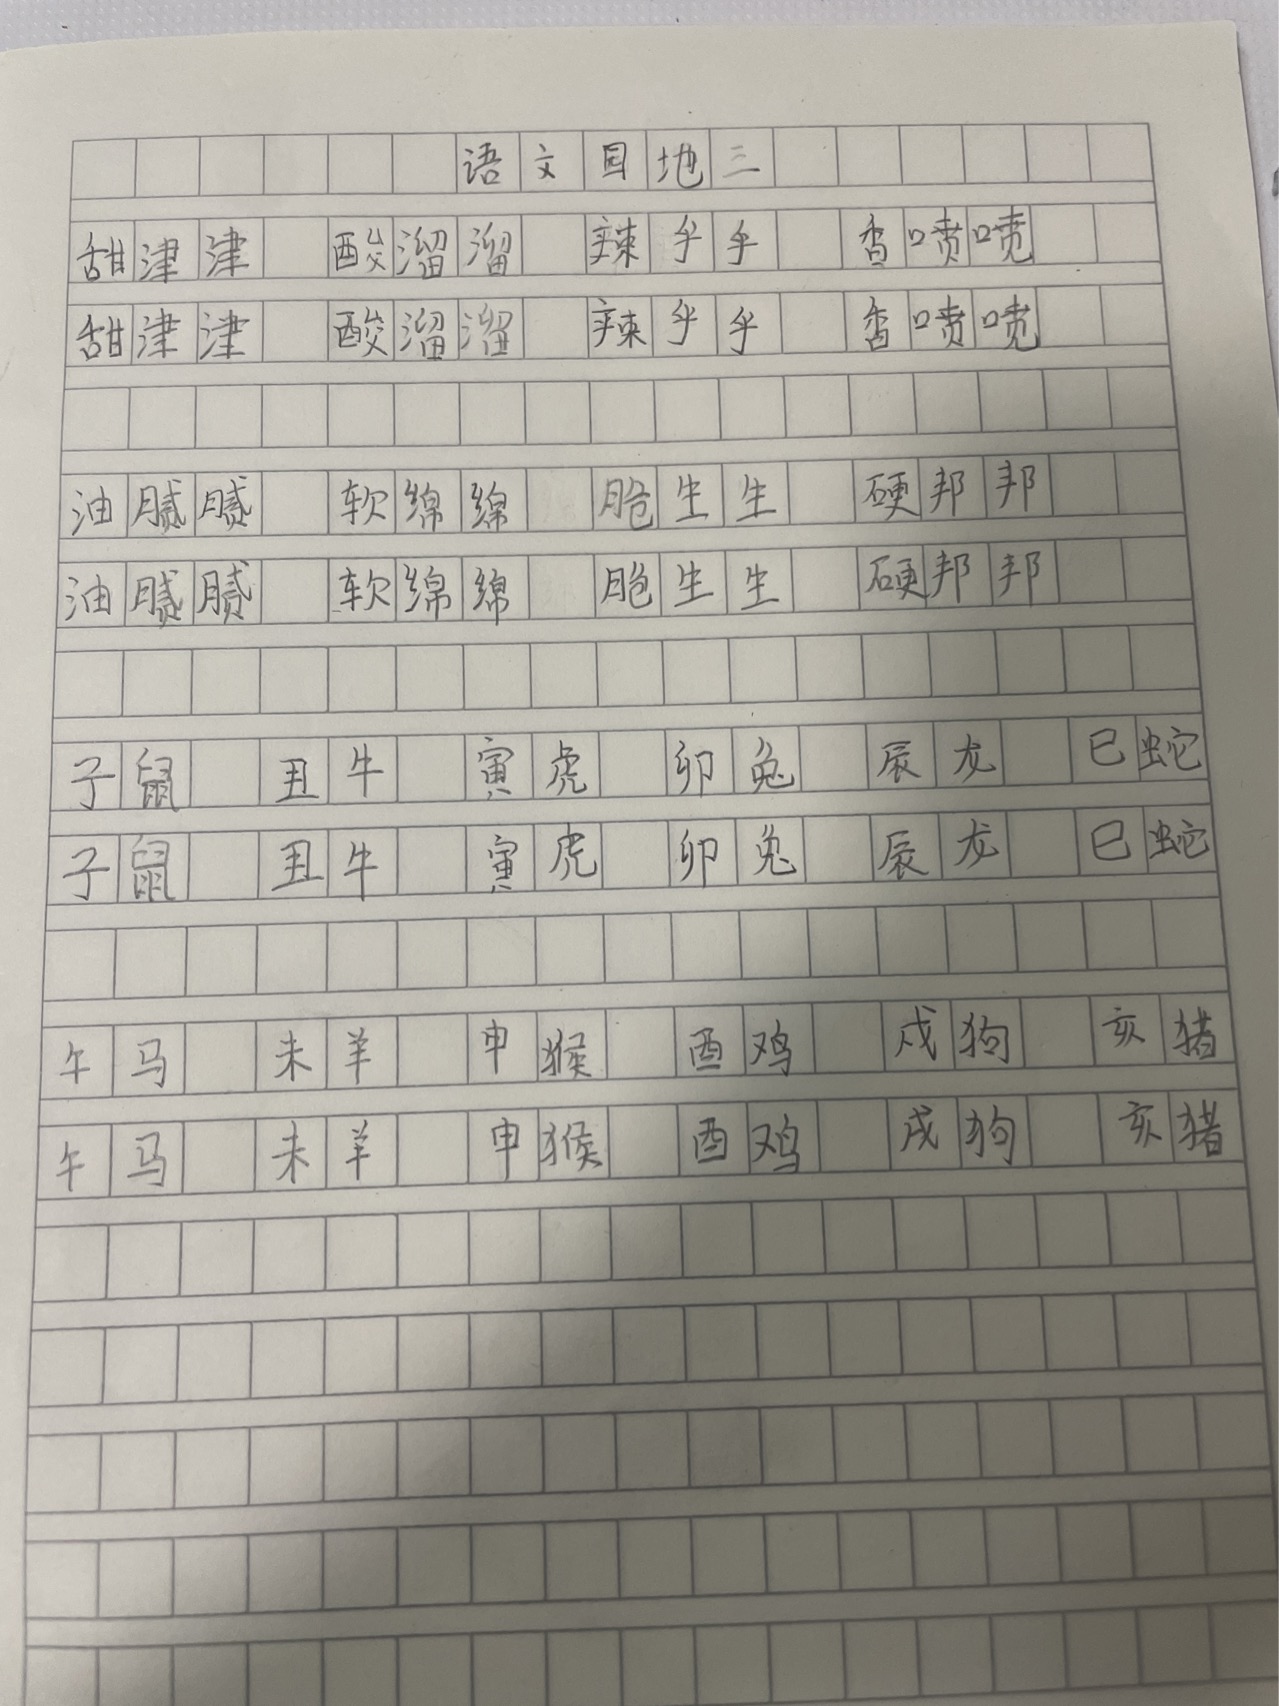 语文园地三
甜津津 酸溜溜 辣乎乎 香喷喷
甜津津 酸溜溜 辣乎乎 香喷喷
油腻腻 软绵绵 脆生生 硬邦邦
油腻腻 软绵绵 脆生生 硬邦邦
子鼠 丑牛 寅虎 卯兔 辰龙 巳蛇
子鼠 丑牛 寅虎 卯兔 辰龙 巳蛇
午马 未羊 申猴 酉鸡 戌狗 亥猪
午马 未羊 申猴 酉鸡 戌狗 亥猪